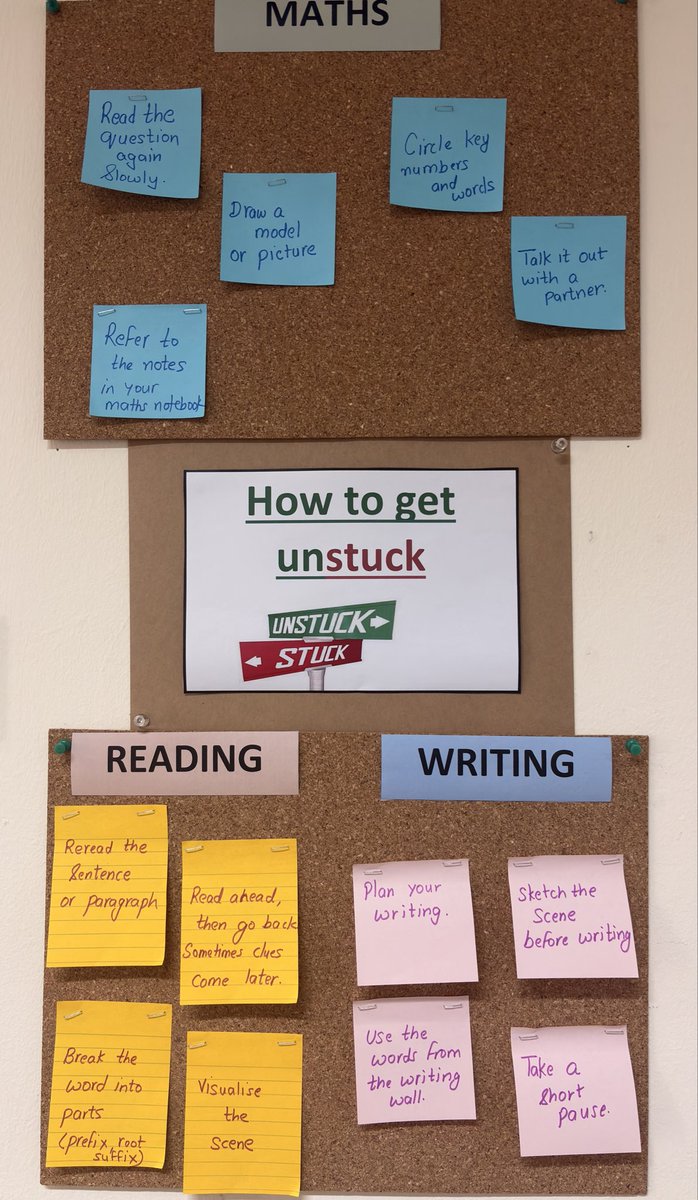 MATHS
Read the
question
again
slowly.
Draw a
model
or picture
Circle key
numbers
and
words
Talk it out
with a
partner.
Refer to
the notes
in your
maths notebook
How to get
unstuck
UNSTUCK
STUCK
READING
Reread the
sentence
or paragraph
Read ahead,
then go back
Sometimes clues
come later.
Break the
word into
parts
(prefix, root
suffix)
Visualise
the
scene
WRITING
Plan your
writing.
Sketch the
scene
before writing
Use the
words from
the writing
wall.
Take a
short
pause.